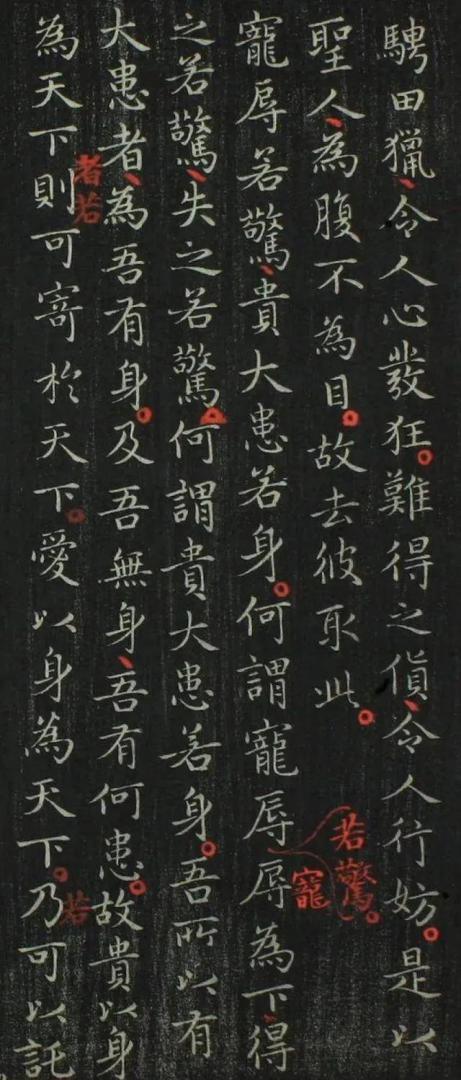 騁田獵、令人心發狂。難得之貨、令人行妨。是以
聖人、為腹不為目。故去彼取此。
若驚。
寵
寵辱若驚、貴大患若身。何謂寵辱辱為下、得
之若驚、失之若驚。何謂貴大患若身。吾所以有
大患者、為吾有身。及吾無身、吾有何患。故貴以身
者若
若
為天下則可寄於天下。愛以身為天下。乃可以託